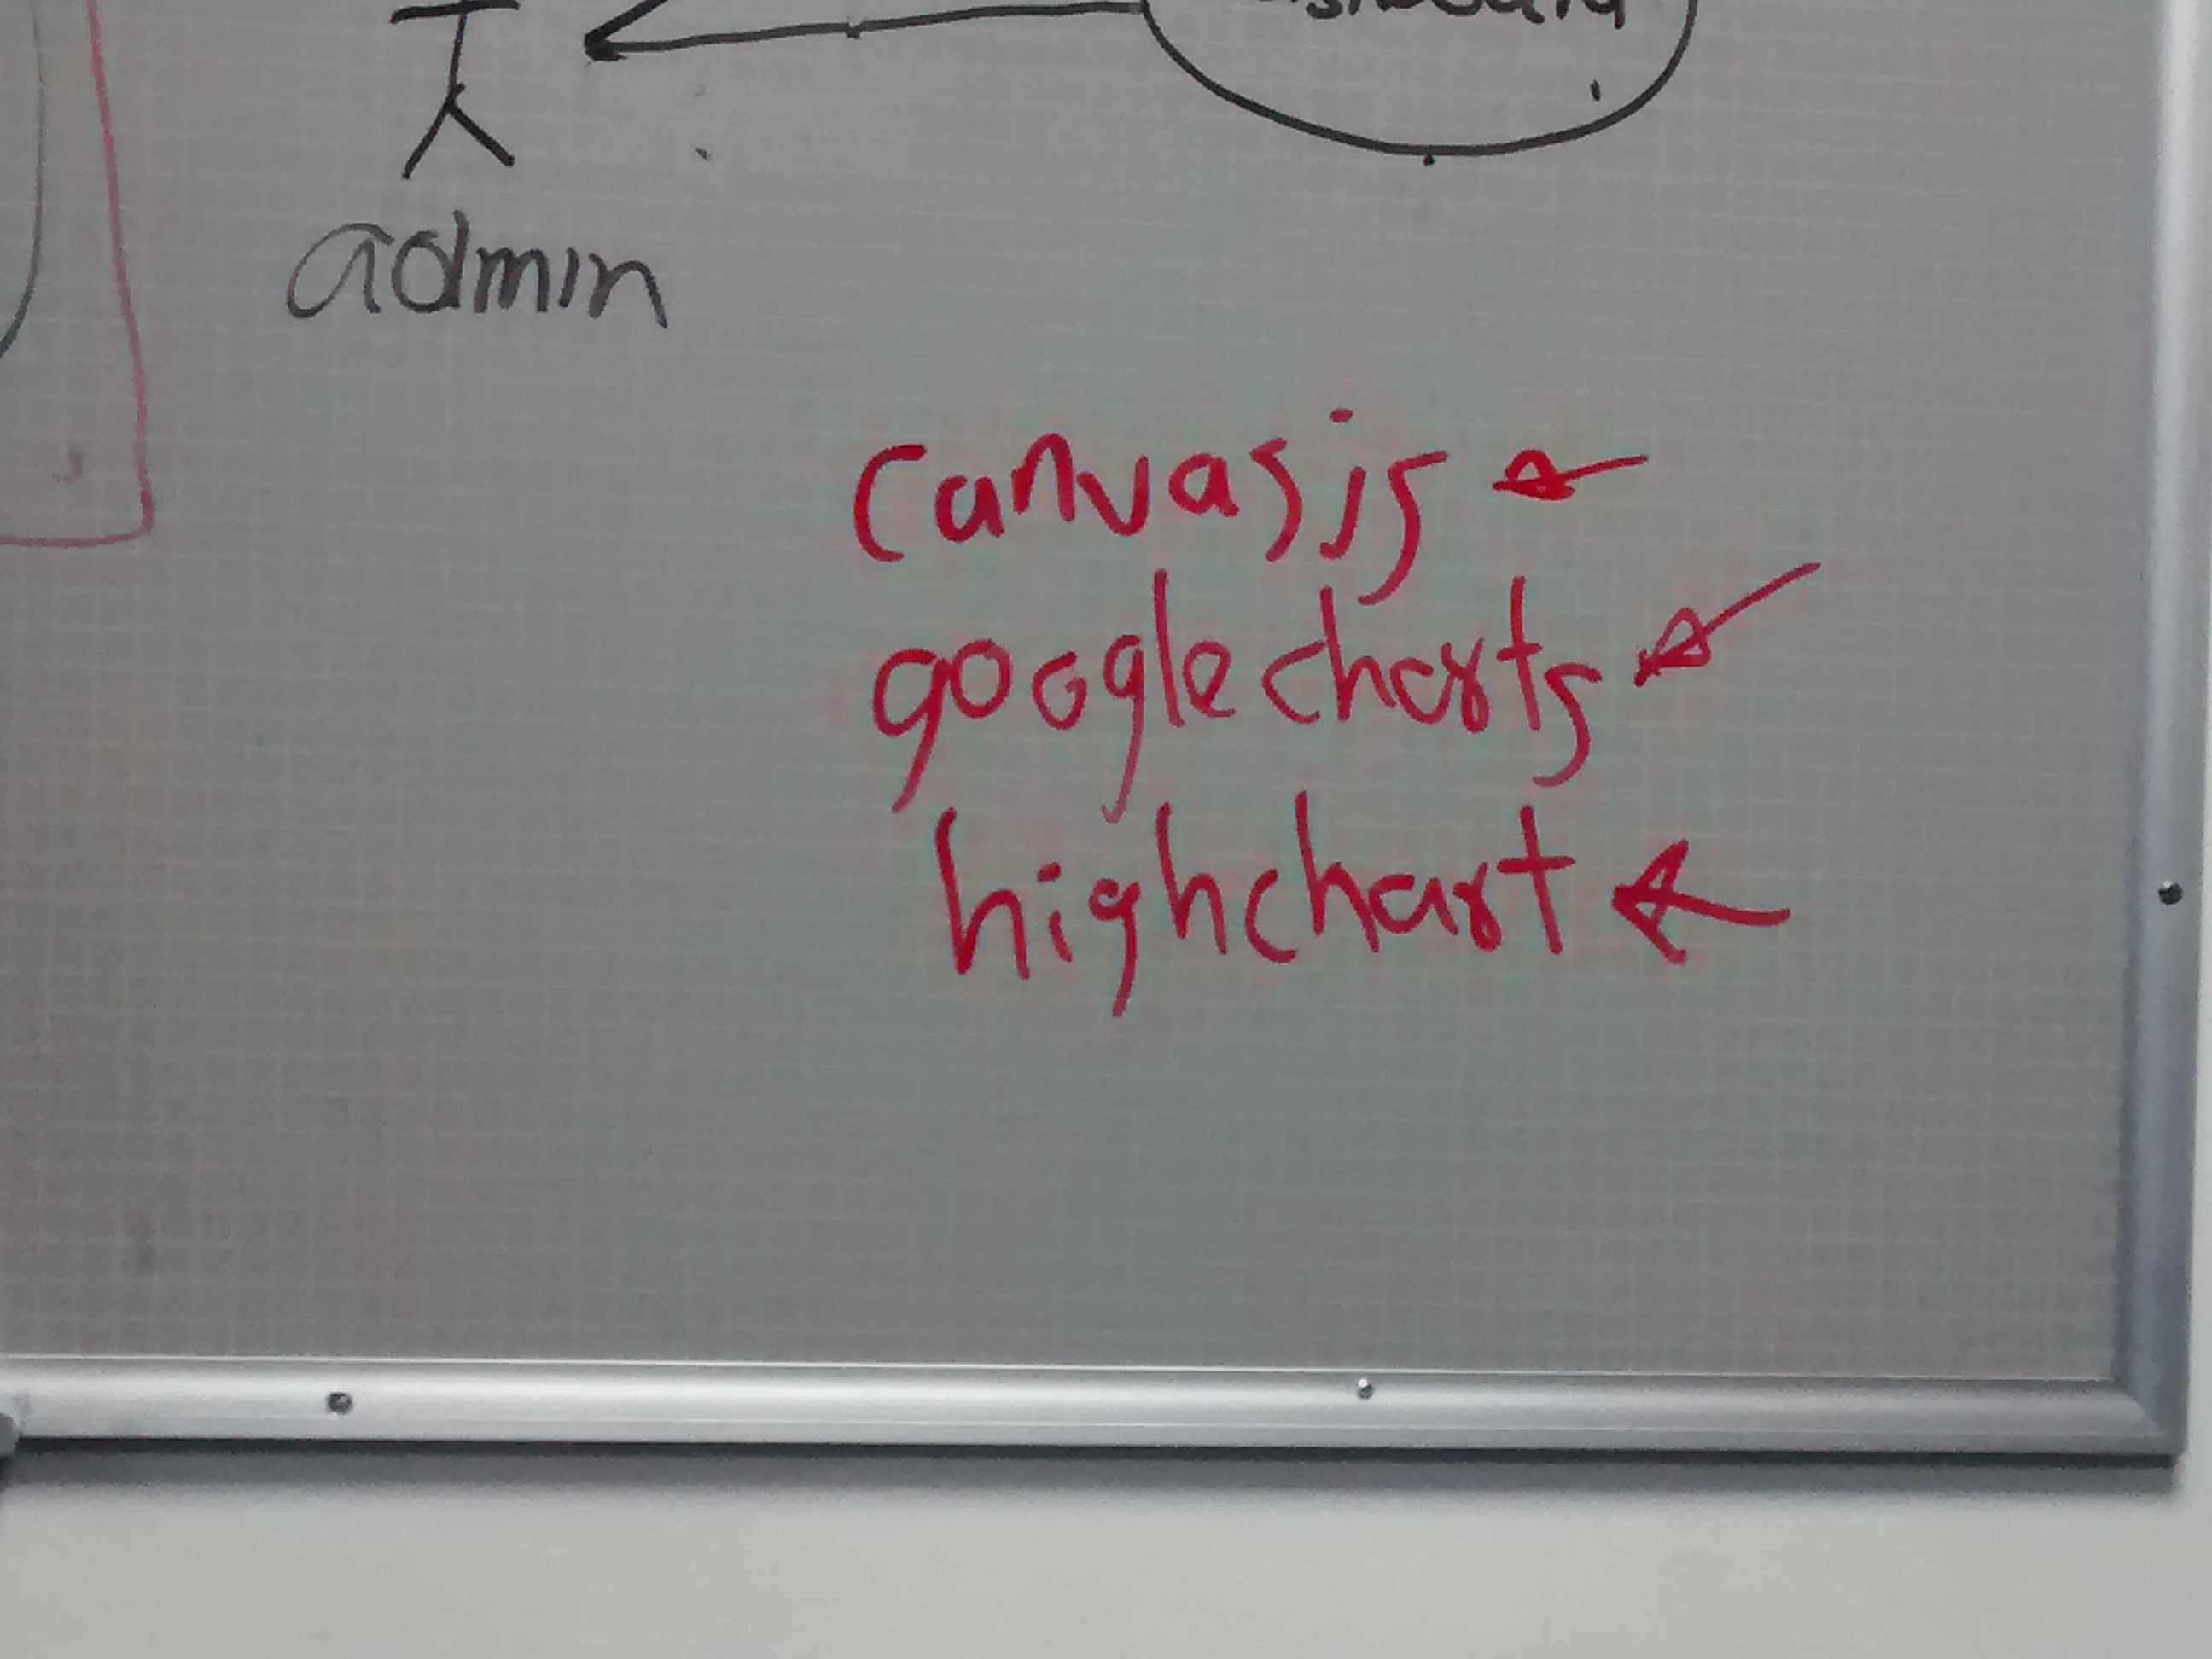 admin
canvasjs
google charts
highchart